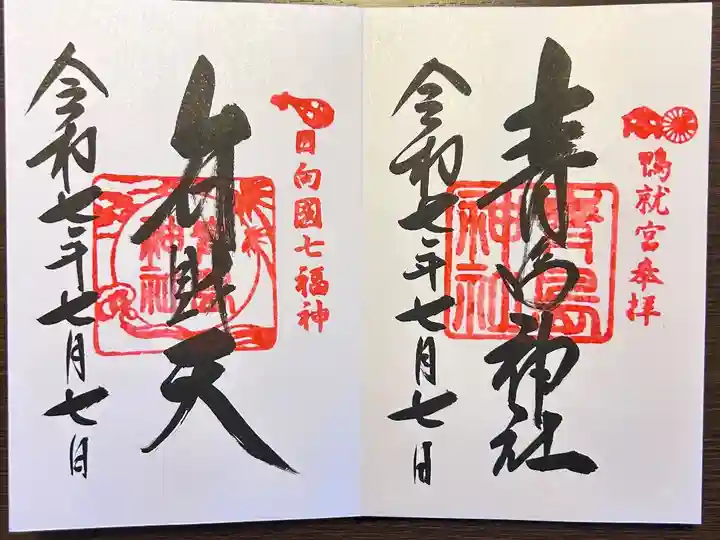 鴨就宮参拝
青島神社
青島神社
令和七年七月七日
日向國七福神
弁財天
青島神社
令和七年七月七日